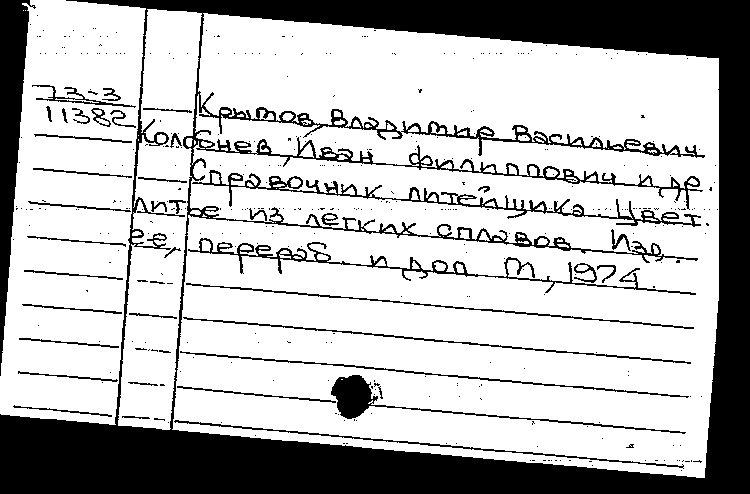 73-3
11382
Крымов, Владимир Васильевич
Колобнев, Иван Филиппович и др.
Справочник литейщика. Цвет.
литье из легких сплавов. Изд.
2-е, перераб. и доп. М, 1974.